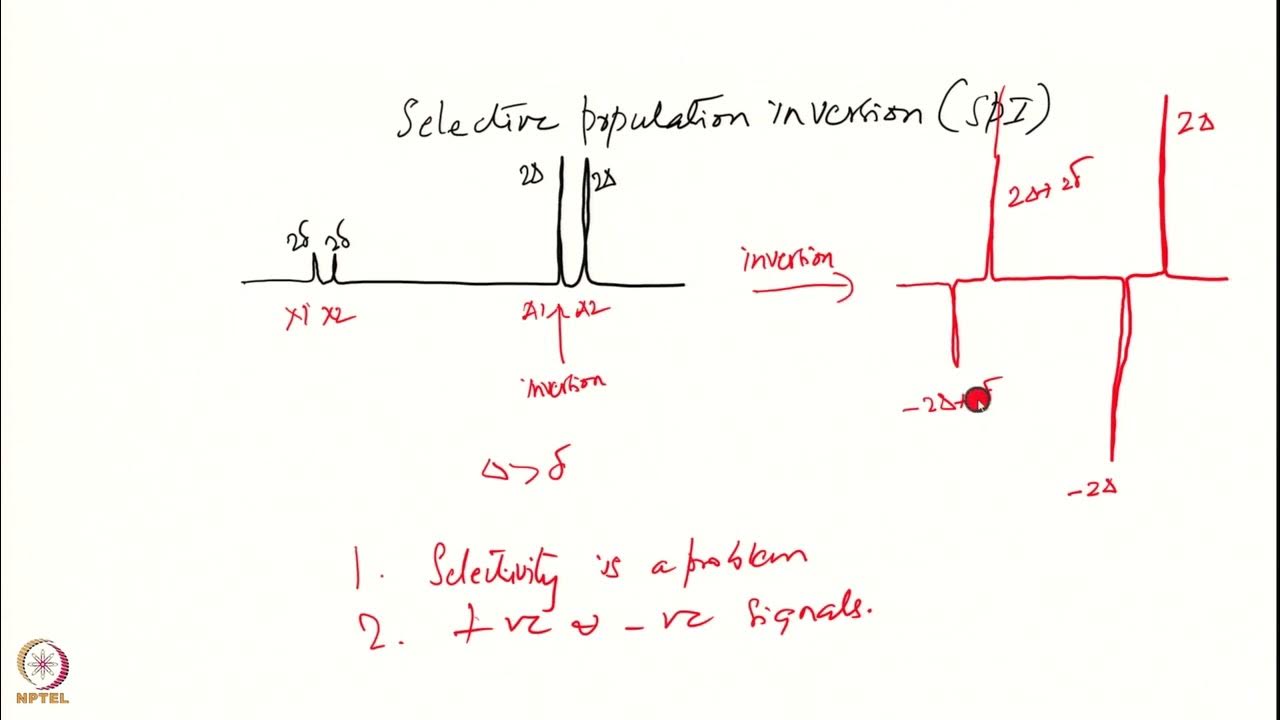 Selective population inversion (SPI)
2δ 2δ
2Δ 2Δ
X1 X2
A1 A2
inversion
Δ > δ
inversion
2Δ + 2δ
2Δ
-2Δ+ δ
-2Δ
1. Selectivity is a problem
2. +ve & -ve Signals.
NPTEL